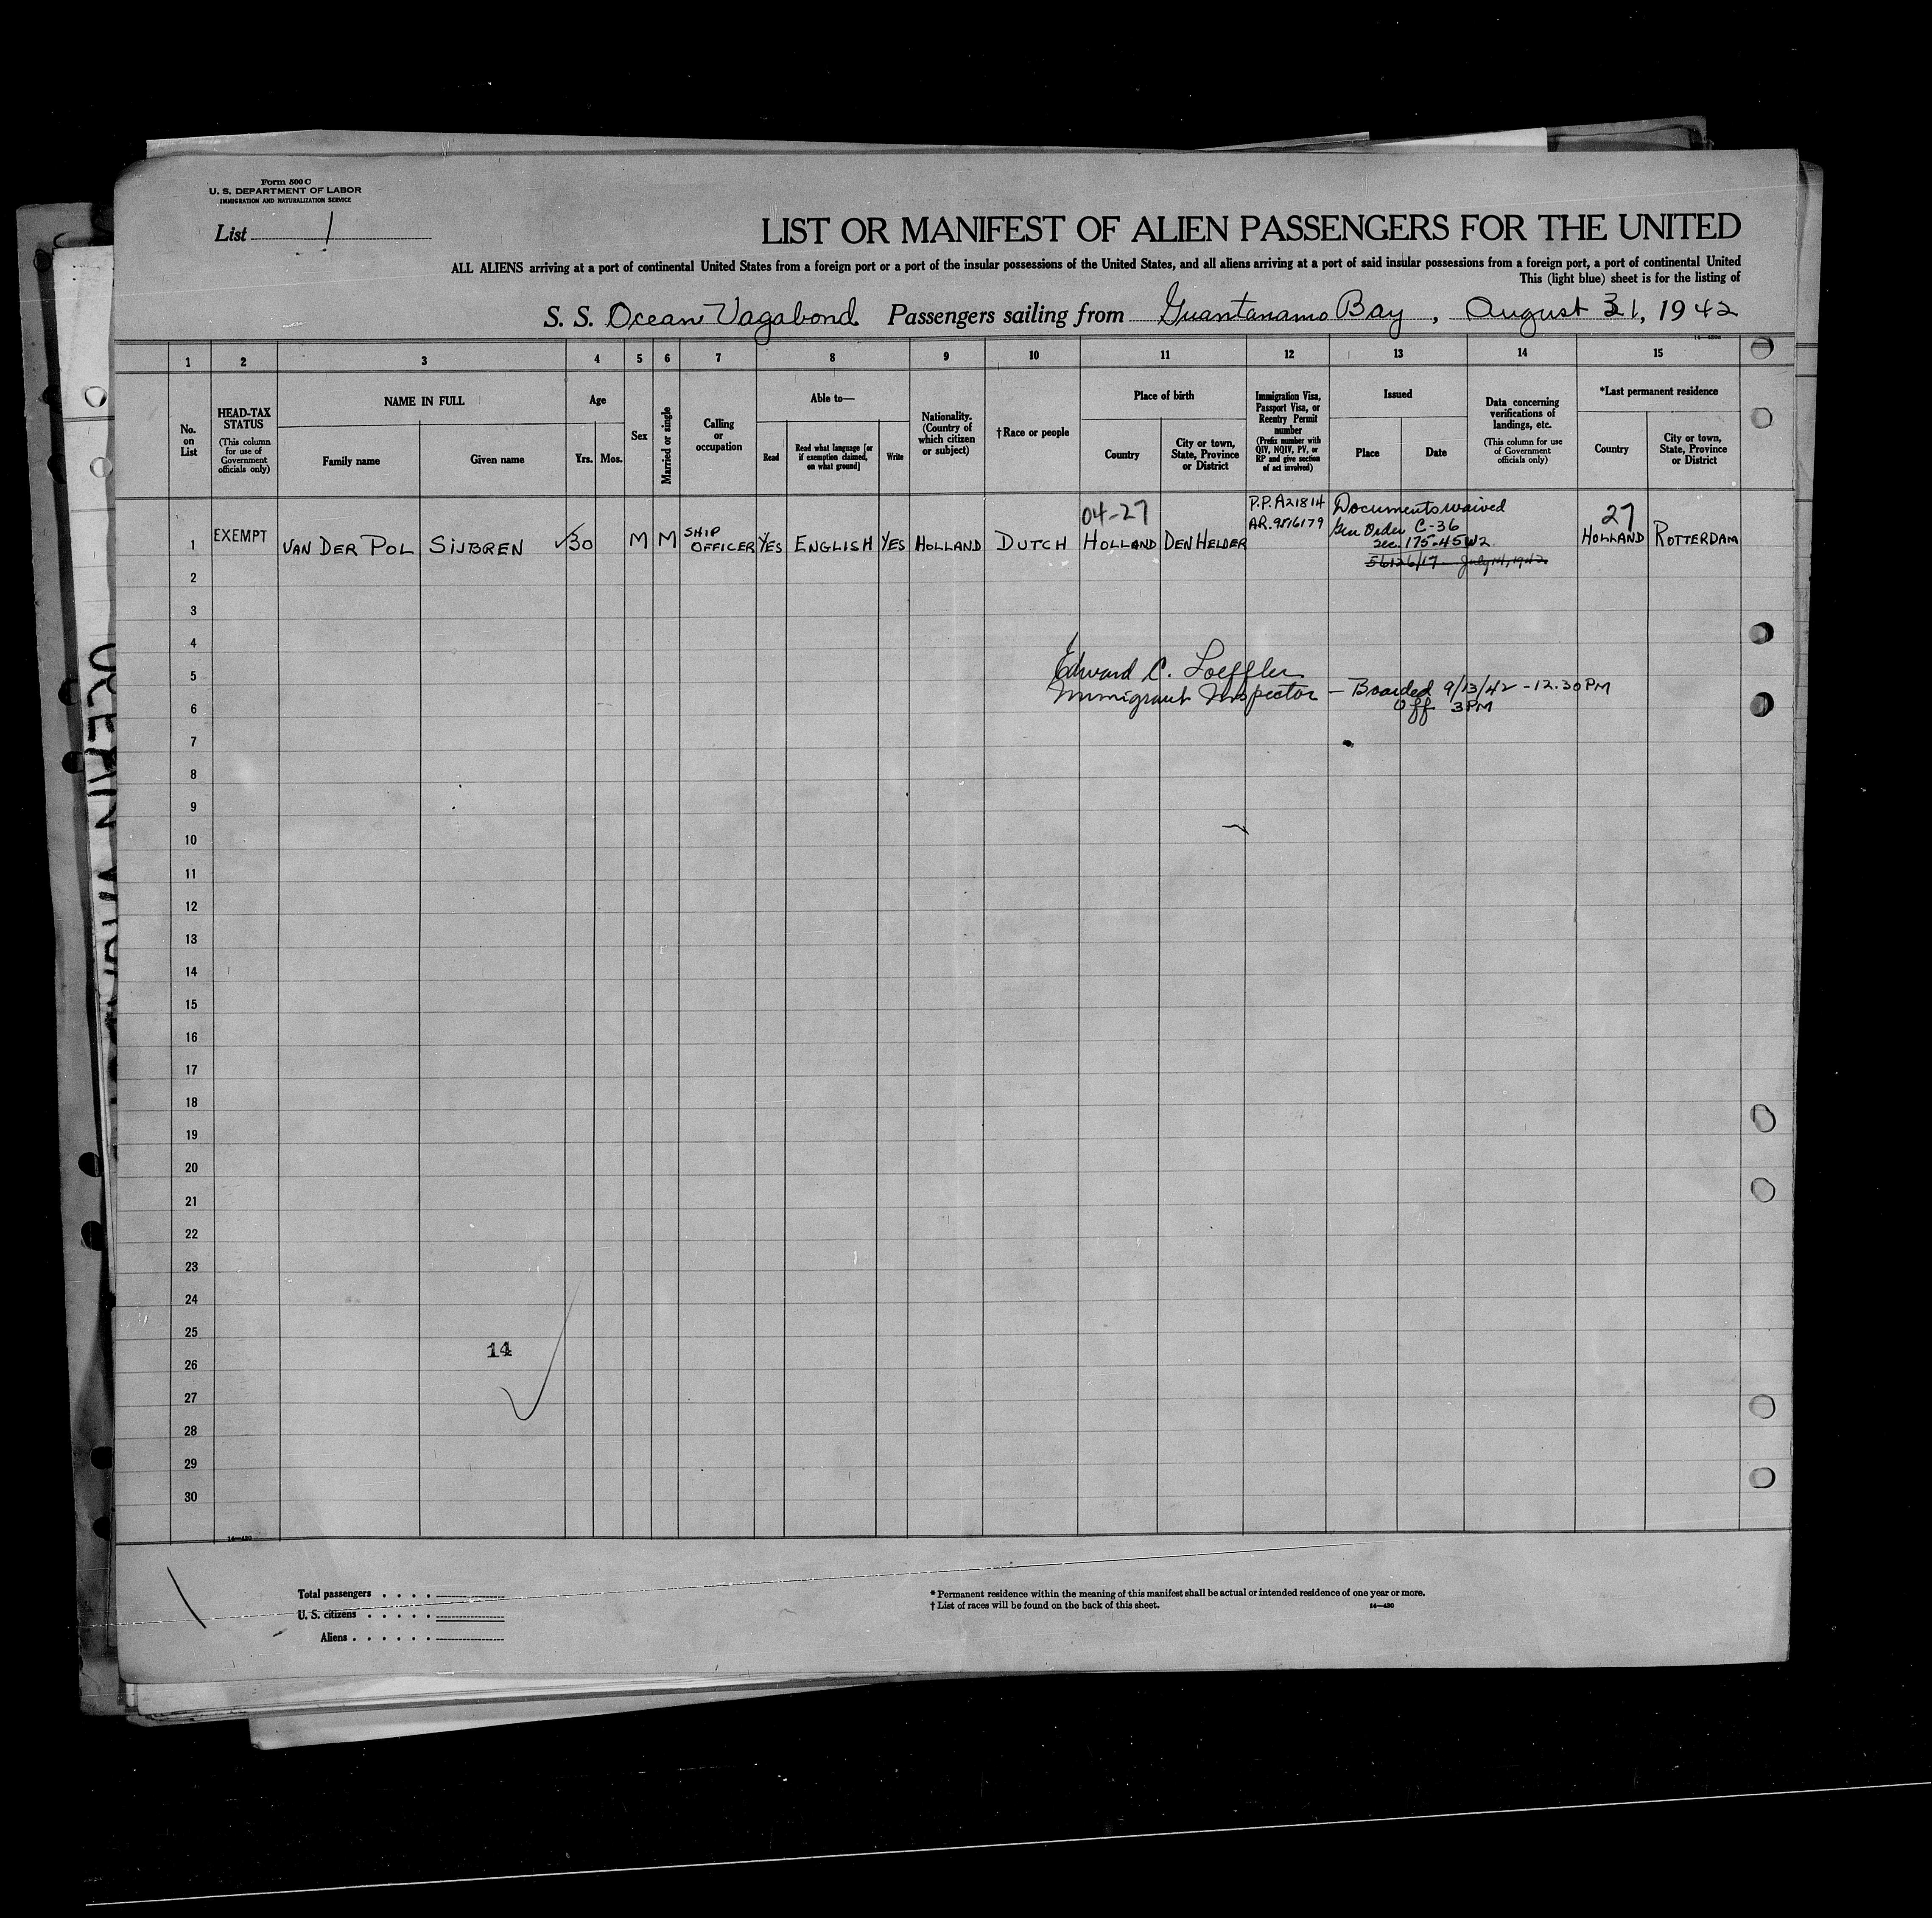 Form 500 C
U. S. DEPARTMENT OF LABOR
IMMIGRATION AND NATURALIZATION SERVICE
List 1
LIST OR MANIFEST OF ALIEN PASSENGERS FOR THE UNITED
ALL ALIENS arriving at a port of continental United States from a foreign port or a port of the insular possessions of the United States, and all aliens arriving at a port of said insular possessions from a foreign port, a port of continental United
This (light blue) sheet is for the listing of
S. S. Ocean Vagabond Passengers sailing from Guantanamo Bay, August 31, 1942
1 2 3 4 5 6 7 8 9 10 11 12 13 14 15
No. on List
HEAD-TAX STATUS
(This column for use of Government officials only)
NAME IN FULL
Family name
Given name
Age
Yrs.
Mos.
Sex
Married or single
Calling or occupation
Able to—
Read
Read what language [or if exemption claimed, on what ground]
Write
Nationality. (Country of which citizen or subject)
†Race or people
Place of birth
Country
City or town, State, Province or District
Immigration Visa, Passport Visa, or Reentry Permit number
(Prefix number with QIV, NQIV, PV, or RP and give section of act involved)
Issued
Place
Date
Data concerning verifications of landings, etc.
(This column for use of Government officials only)
*Last permanent residence
Country
City or town, State, Province or District
04-27
P.P. A21814
AR. 9876179
Documents waived
Gen Order C-36
Sec. 175.45W2
56126/17 July 14, 1942
27
1 EXEMPT VAN DER POL SIJBREN 30 M M SHIP OFFICER YES ENGLISH YES HOLLAND DUTCH HOLLAND DEN HELDER HOLLAND ROTTERDAM
2
3
4
Edward C. Loeffler
5
Immigrant Inspector — Boarded 9/13/42 - 12.30 PM
6
Off 3 PM
7
8
9
10
11
12
13
14
15
16
17
18
19
20
21
22
23
24
25
14
26
27
28
29
30
14—430
Total passengers
U. S. citizens
Aliens
* Permanent residence within the meaning of this manifest shall be actual or intended residence of one year or more.
† List of races will be found on the back of this sheet.
14—430